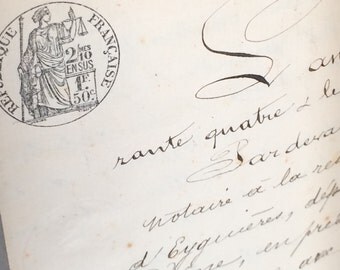 RÉPUBLIQUE FRANÇAISE
2/10
EN SUS
1F
50c
L'an
rante quatre & le
Pardeva
notaire à la rés
d'Eyguières, dép
en pré